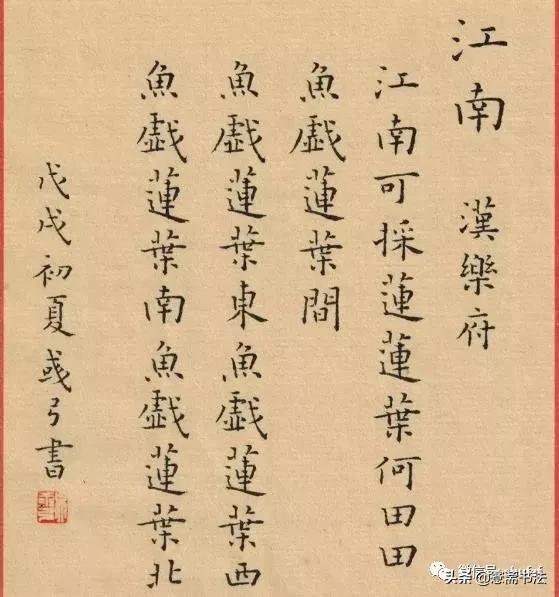 江南 漢樂府
江南可採蓮蓮葉何田田
魚戲蓮葉間
魚戲蓮葉東魚戲蓮葉西
魚戲蓮葉南魚戲蓮葉北
戊戌初夏彧弓書
头条@愙斋书法